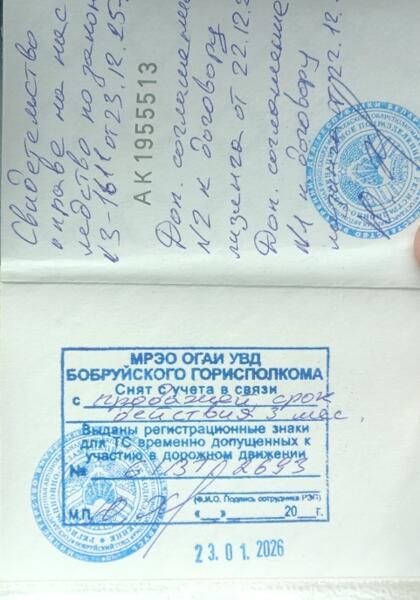 Свидетельство
о праве на нас
ледство по закон
13-1611 от 23.12.25
АК1955513
Доп. соглашение
N2 к договору
лизинга от 22.12.
Доп. соглашение
N1 к договору
от 22.12.
МРЭО ОГАИ УВД
БОБРУЙСКОГО ГОРИСПОЛКОМА
Снят с учета в связи
с продажей срок
действия 3 мес.
Выданы регистрационные знаки
для ТС временно допущенных к
участию в дорожном движении
№
(Ф.И.О. Подпись сотрудника РЭП)
М.П.
«__»______20__г.
23.01.2026